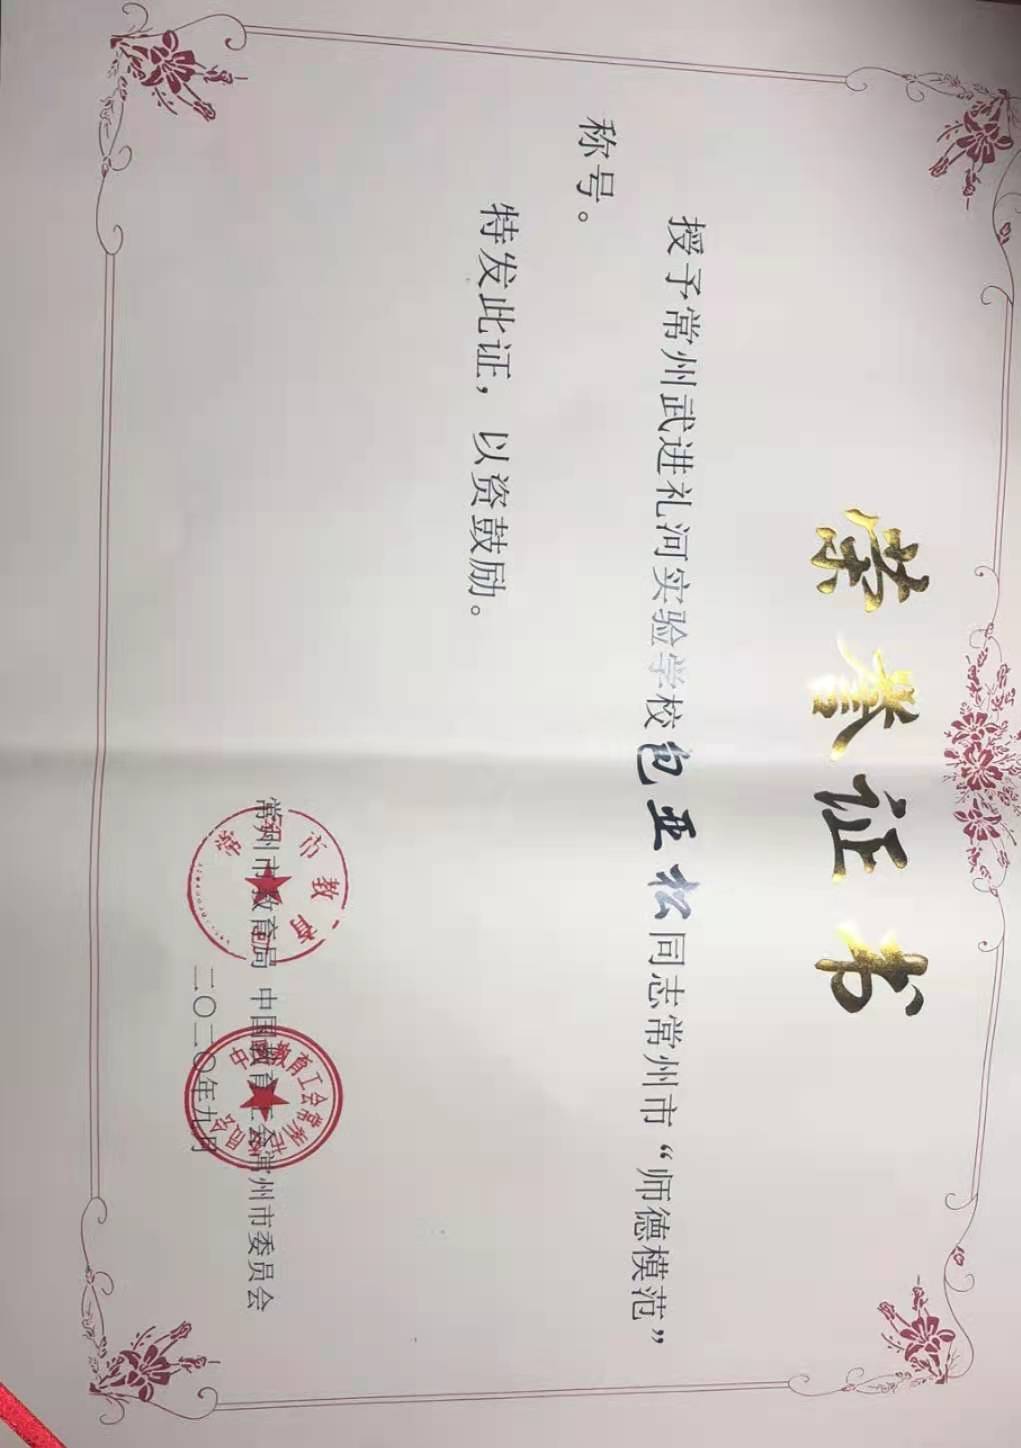 荣誉证书
授予常州武进礼河实验学校包亚松同志常州市“师德模范”
称号。
特发此证，以资鼓励。
常州市教育局 中国教育工会常州市委员会
二〇二〇年九月